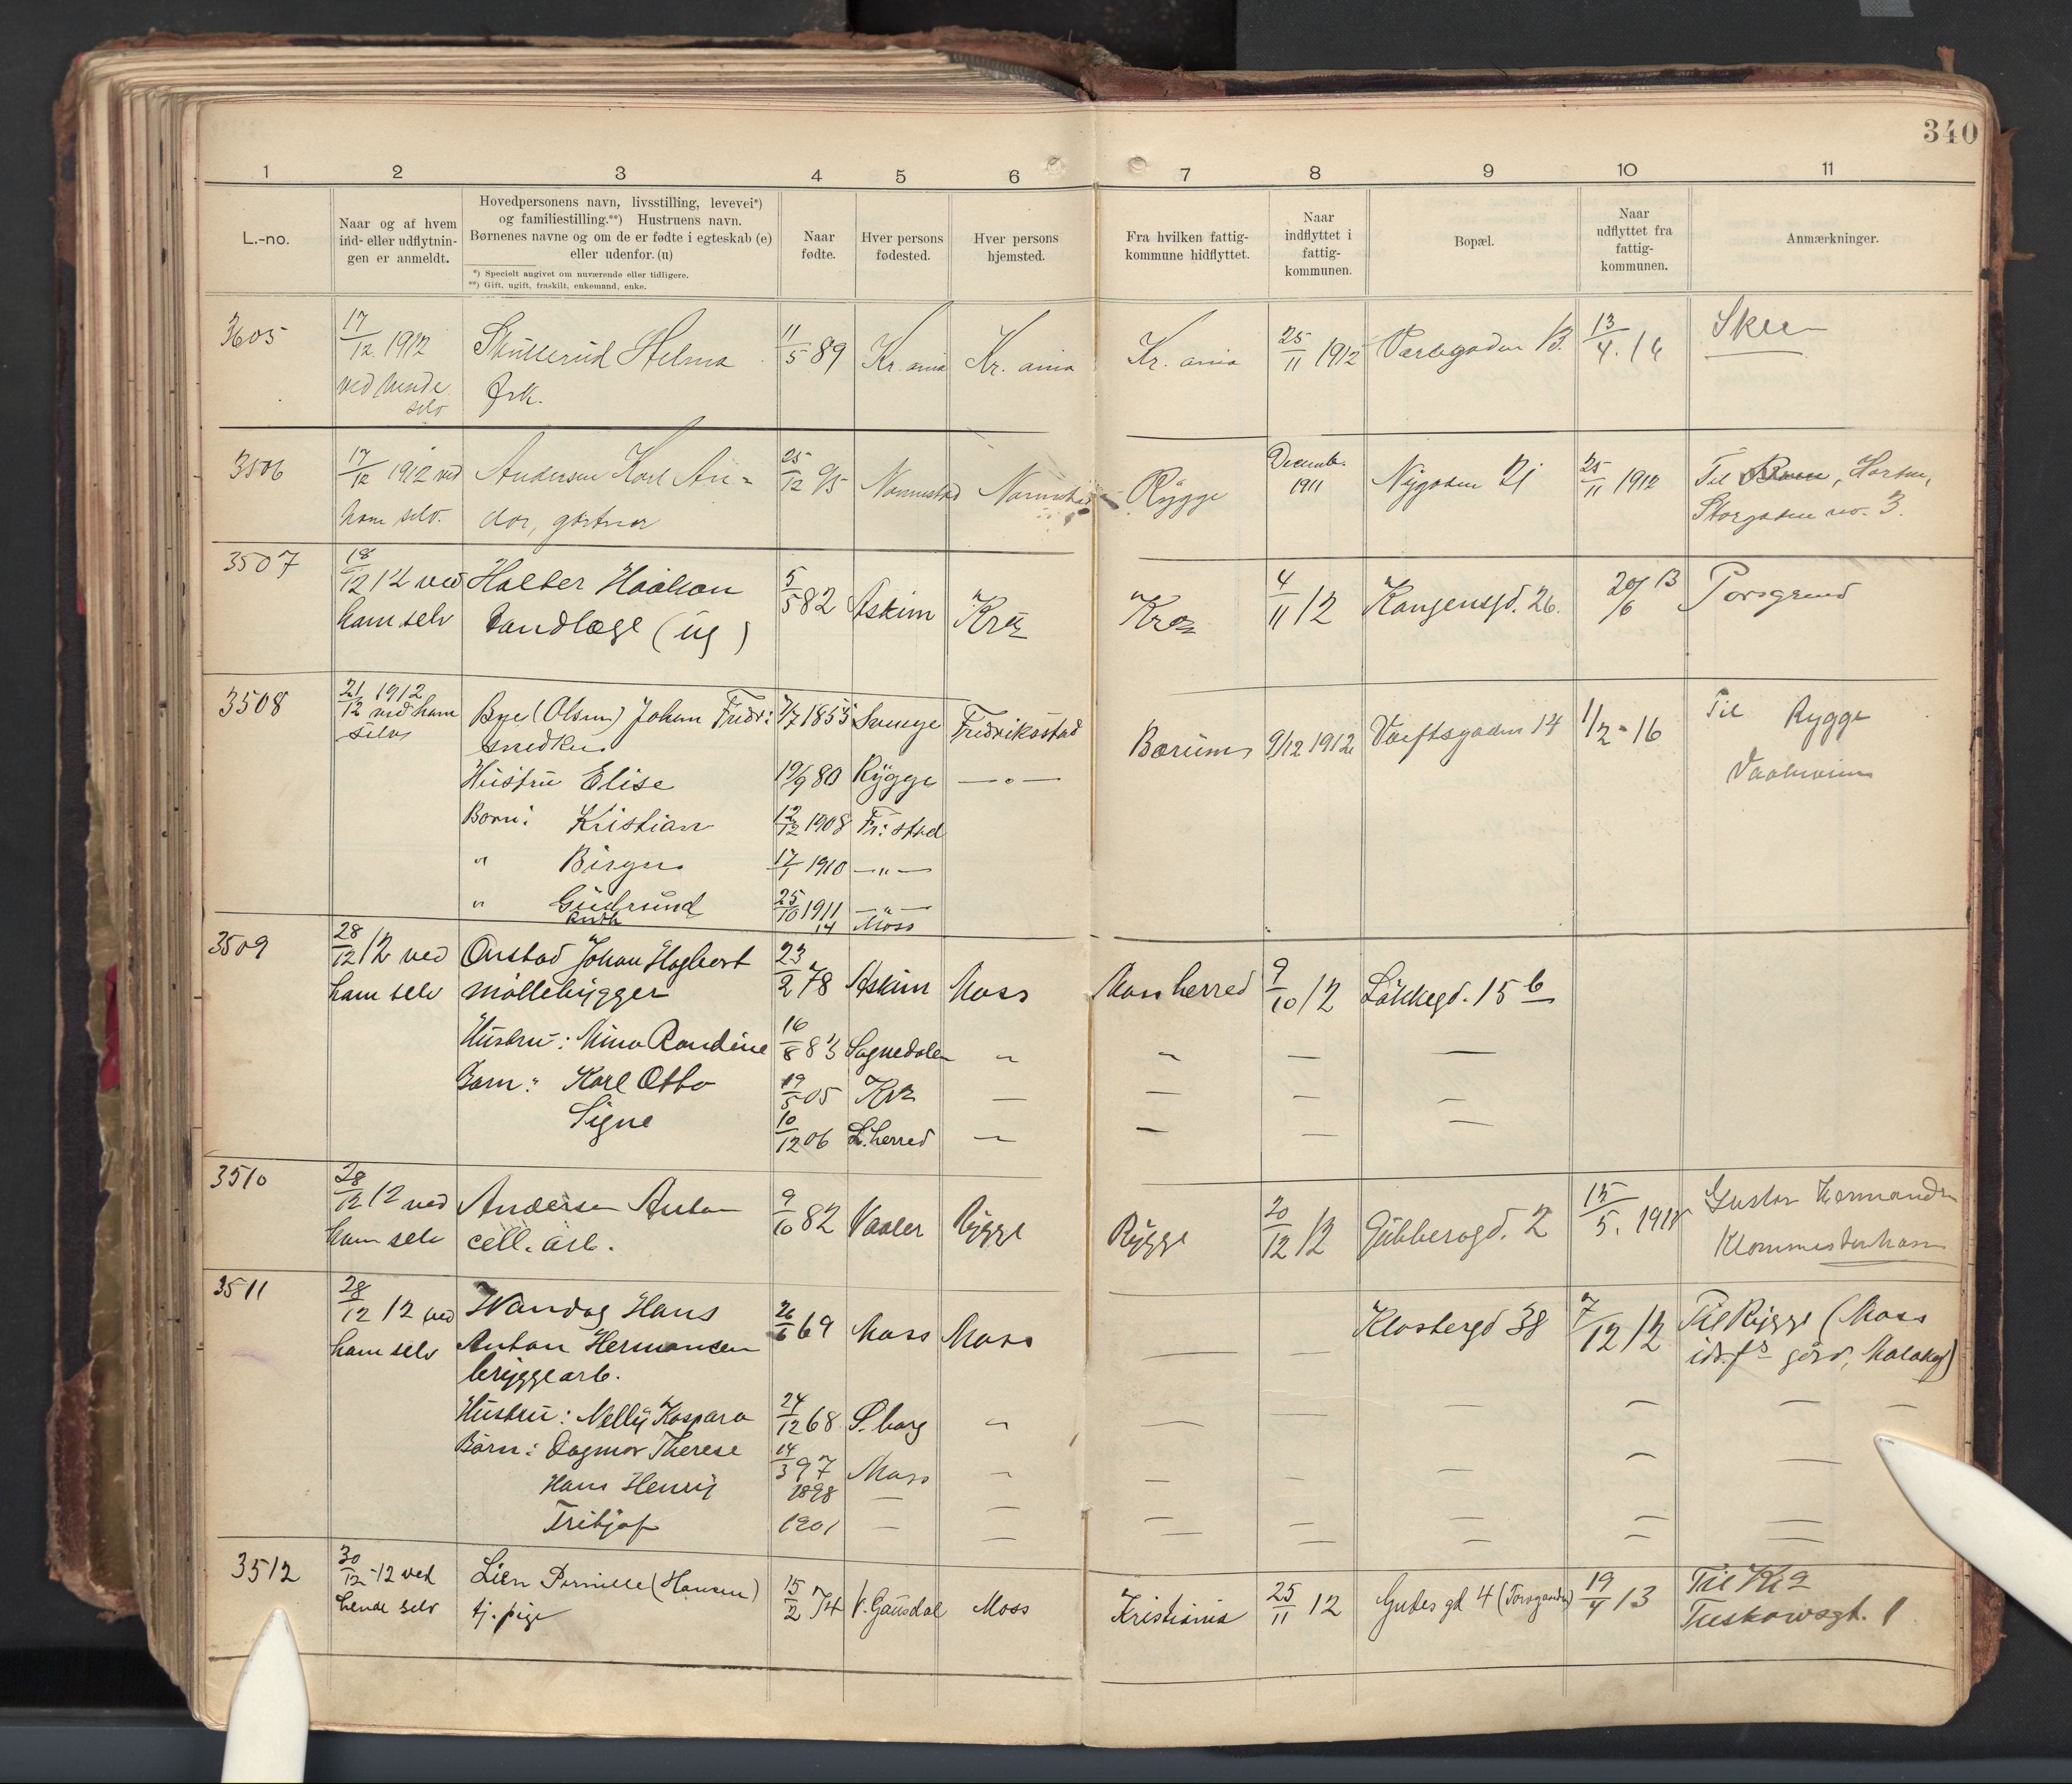 340
1 2 3 4 5 6 7 8 9 10 11
L.-no.
Naar og af hvem
ind- eller udflytnin-
gen er anmeldt.
Hovedpersonens navn, livsstilling, levevei*)
og familiestilling.**) Hustruens navn.
Børnenes navne og om de er fødte i egteskab (e)
eller udenfor. (u)
*) Specielt angivet om nuværende eller tidligere.
**) Gift, ugift, fraskilt, enkemand, enke.
Naar
fødte.
Hver persons
fødested.
Hver persons
hjemsted.
Fra hvilken fattig-
kommune hidflyttet.
Naar
indflyttet i
fattig-
kommunen.
Bopæl.
Naar
udflyttet fra
fattig-
kommunen.
Anmærkninger.
3605 17/12 1912 Skullerud Helma 11/5 89 Kr. ania Kr. ania Kr. ania 25/11 1912 13. 13/4. 14
ved hende frk.
selv
3506 17/12 1912 ved Andersen Karl An= 25/12 Rygge Decemb. 1911 Nygaden 21 25/11 1912 Til Horten,
ham selv. dor, gartner Storgaden no. 3.
3507 18/12 12 ved Halter Haakon 5/5 82 Askim Kra Kra 4/11 12 Kongensgd. 26. 20/6 13 Porsgrund
ham selv Tandlæge (ug)
3508 21/12 1912 Bye (Olsen) Johan Fredr: 7/7 1855 Fredriksstad Bærum 9/12 1912 Værftsgaden 14 1/2 - 16 Til Rygge
ved ham
selv snedker
Hustru Elise 19/9 80 Rygge — " —
Børn: Kristian 12/12 1908 Fr: stad
" Birger 17/1 1910 — " —
" Gudrund 25/10 1911 — " —
Ruth 14 Moss
3509 28/12 12 ved Onstad Johan Hagbart 23/2 78 Askim Moss Moss herred 9/10 12 Løkkegd. 15 b
ham selv møllebygger
Hustru: Mina Randine 16/8 83 Sognedalen " " — —
Barn: Karl Otto 19/5 05 Kra — — — —
Signe 10/12 06 L. herred — — — —
3510 28/12 12 ved Andersen Anton 9/10 82 Vaaler Rygge Rygge 20/12 12 Gubberogd. 2 15/5. Gustav Hermandsen
ham selv cell. arb.
3511 28/12 12 ved Wandag Hans 26/6 69 Moss Moss — — Klostergd 38 7/12 12 Til Rygge (Moss
ham selv Anton Hermansen
bryggearb.
Hustru: Nelly Kaspara 24/12 68 S. borg " — — — — —
Børn: Dagmar Therese 14/3 97 Moss " — — — — —
Hans Henry 1898 — — — — — — —
Fritjof 1901 — — — — — — —
3512 30/12 - 12 ved Lien Pernille (Hansen) 15/2 74 V. Gausdal Moss Kristiania 25/11 12 Gudes gd 4 (Torvgaden) 19/4 13 Til Kra
hende selv tj. pige